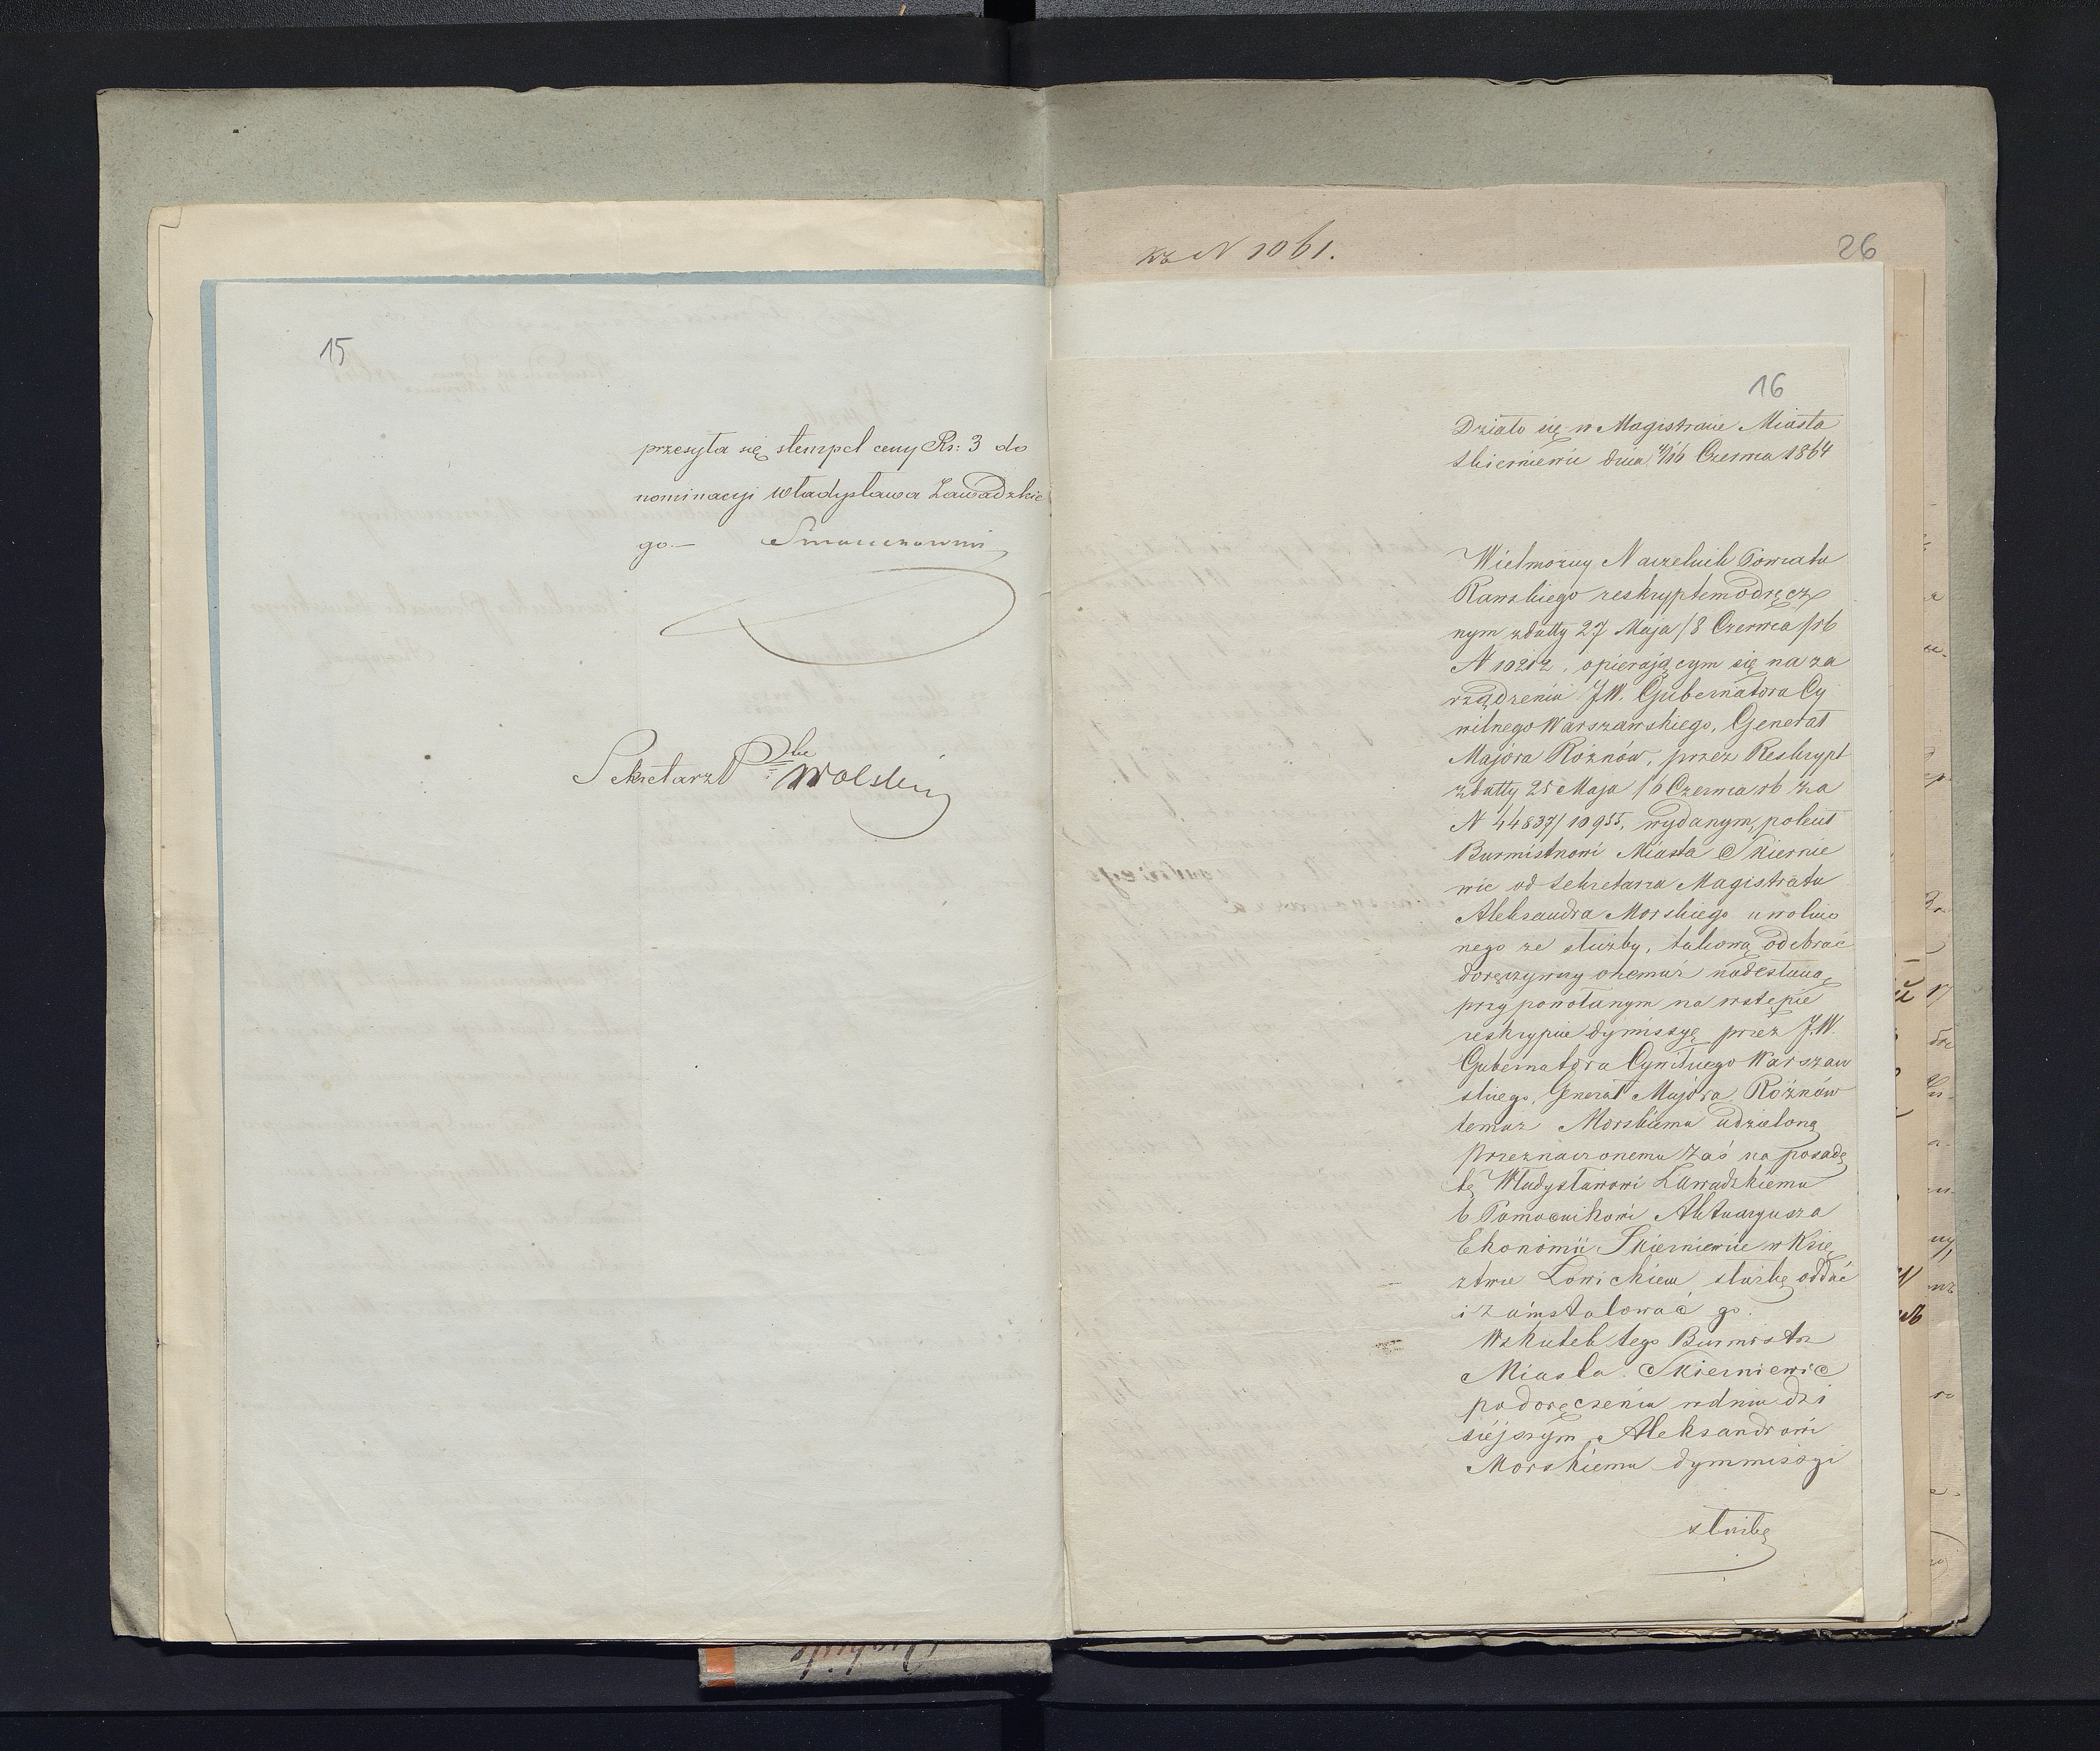 15
przesyła się stempel ceny Rs: 3 do
nominacyi Władysława Zawadzkie
go.—
Sekretarz Ptu Wolski
kz N 1061.
26
16
Działo się w Magistracie Miasta
Skierniewic dnia 4/16 Czerwca 1864
Wielmożny Naczelnik Powiatu
Rawskiego reskryptem odręcz
nym z datty 27 Maja /8 Czerwca /rb
N 10212, opierającym się na za
rządzeniu JW. Gubernatora Cy
wilnego Warszawskiego, Generał
Majora Rożnów, przez Reskrypt
z datty 25 Maja /6 Czerwca rb za
N 44837/10955, wydanym, polecił
Burmistrzowi Miasta Skiernie
wic od Sekretarza Magistratu
Aleksandra Morskiego uwolnio
nego ze służby, takową odebrać
doręczywszy onemuż nadesłaną
przy powołanym na wstępie
reskrypcie dymissyę przez J.W.
Gubernatora Cywilnego Warszaw
skiego, Generał Majora Rożnów
temuż Morskiemu udzieloną
Przeznaczonemu zaś na posadę
tę Władysławowi Zawadzkiemu
b Pomocnikowi Aktuaryusza
Ekonomii Skierniewice w Księ
ztwie Łowickiem służbę oddać
i zainstalować go.
Wskutek tego Burmistrz
Miasta Skierniewic
po doręczeniu w dniu dzi
siejszym Aleksandrowi
Morskiemu dymmissyi
służbę